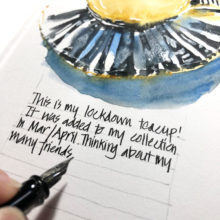 This is my lockdown teacup!
It was added to my collection
in Mar/April. Thinking about my
many friends